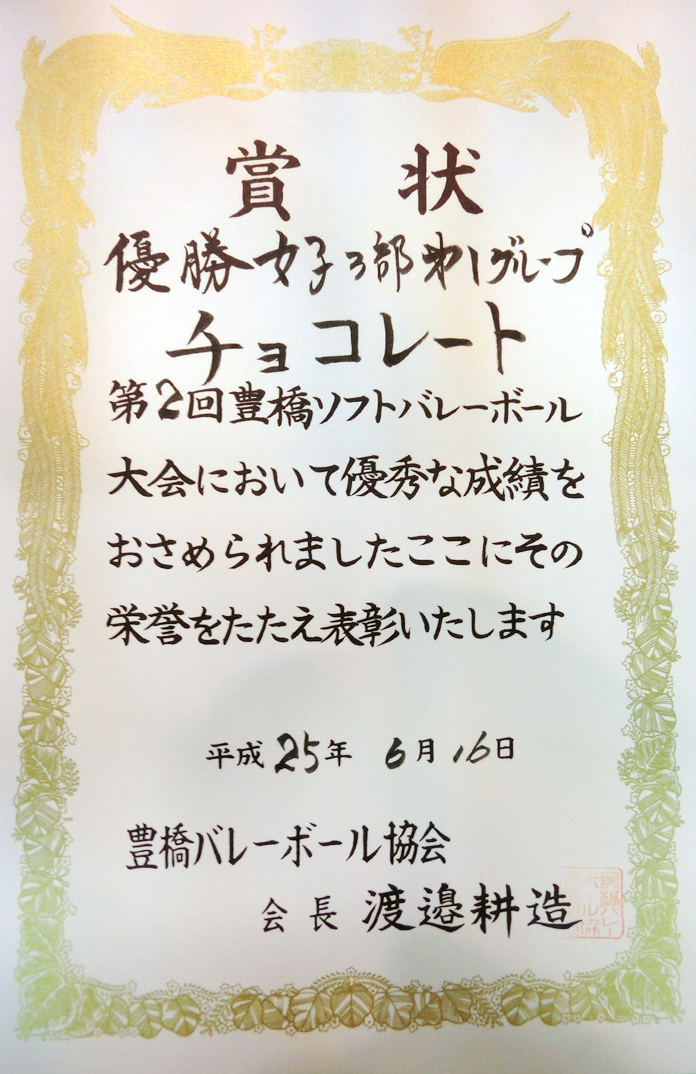 賞状
優勝女子3部第1グループ
チョコレート
第2回豊橋ソフトバレーボール
大会において優秀な成績を
おさめられましたここにその
栄誉をたたえ表彰いたします
平成25年 6月16日
豊橋バレーボール協会
会長 渡邉耕造